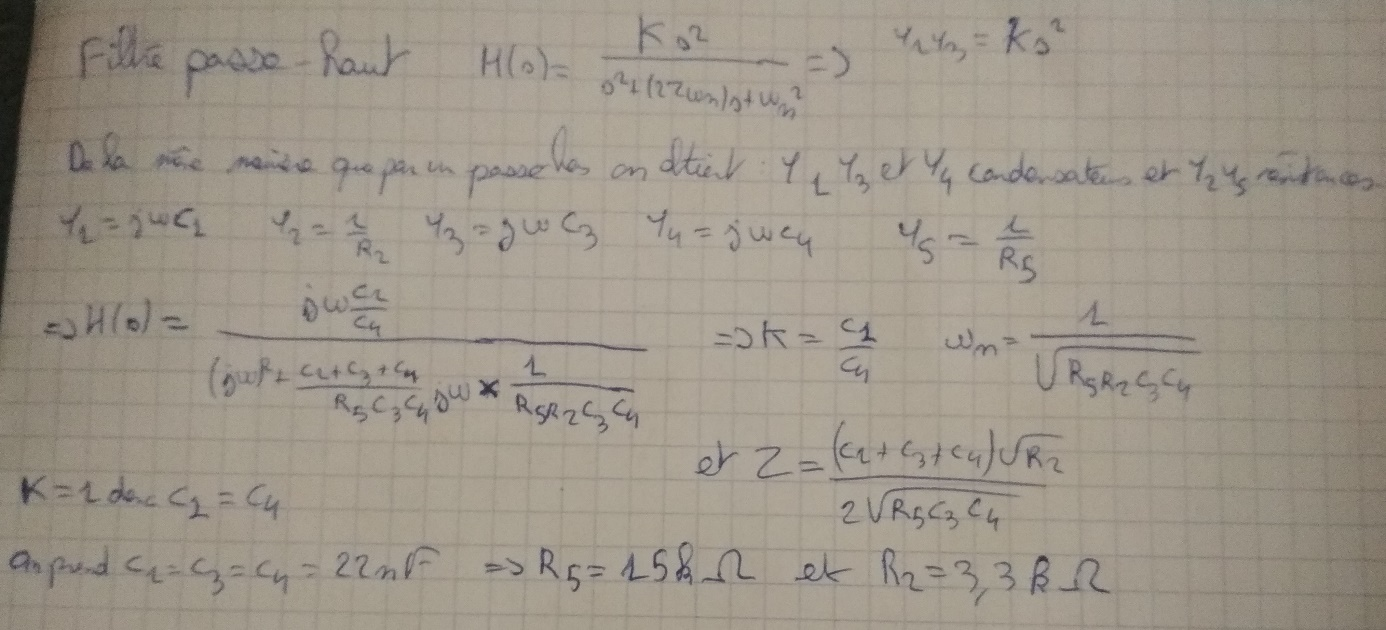 Filtre passe-haut H(s) = Ks² / (s²+(2Zωn)s+ωn²) => Y1Y3 = Ks²
De la même manière que par un passe bas on obtient : Y1 Y3 et Y4 condensateurs et Y2 Y5 résistances
Y1 = jωC1 Y2 = 1/R2 Y3 = jωC3 Y4 = jωC4 Y5 = 1/R5
=> H(s) = (jω C1/C4) / ((jω)² + (C1+C3+C4)/(R5C3C4) jω × 1/(R5R2C3C4)) => K = C1/C4 ωn = 1/√(R5R2C3C4)
et Z = (C1+C3+C4)√R2 / (2√(R5C3C4))
K = 1 donc C1 = C4
On prend C1 = C3 = C4 = 22nF => R5 = 15kΩ et R2 = 3,3kΩ